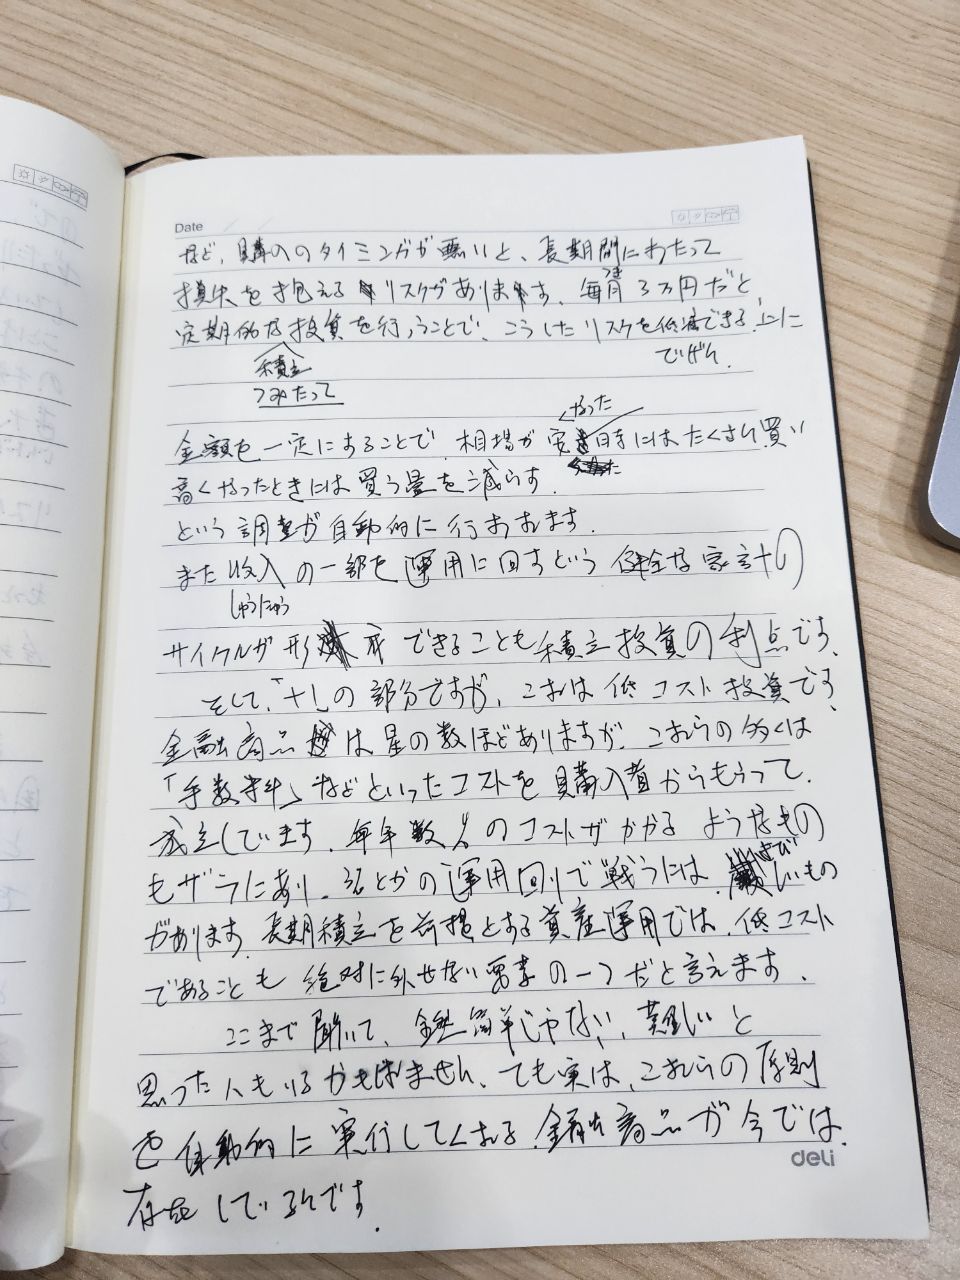 Date
など、購入のタイミングが悪いと、長期間にわたって
損失を抱えるリスクがあります。毎月3万円だと、
つき
定期的な投資を行うことで、こうしたリスクを低減できる上に
積立
つみたって
ていげん
金額を一定にすることで 相場が安 時にはたくさん買い
なった
高くなったときには買う量を減らす.
という調整が自動的に行われます.
また収入の一部を運用に回すという健全な家計の
しゅうにゅう
サイクルが形成できることも積立投資の利点です.
そして、「+」の部分ですが、これは低コスト投資です.
金融商品は星の数ほどありますが、これらの多くは
「手数料」などといったコストを購入者からもらって.
成立しています. 毎年数%のコストがかかるようなもの
もザラにあり. の運用回りで戦うには. きびしいもの
があります. 長期積立を前提とする資産運用では. 低コスト
であることも 絶対に外せない要素の一つだと言えます.
ここまで聞いて、全然簡単じゃない、難しいと
思った人もいるかもしれません、でも実は、これらの原則
を自動的に実行してくれる金融商品が今では.
存在しているんです.
deli